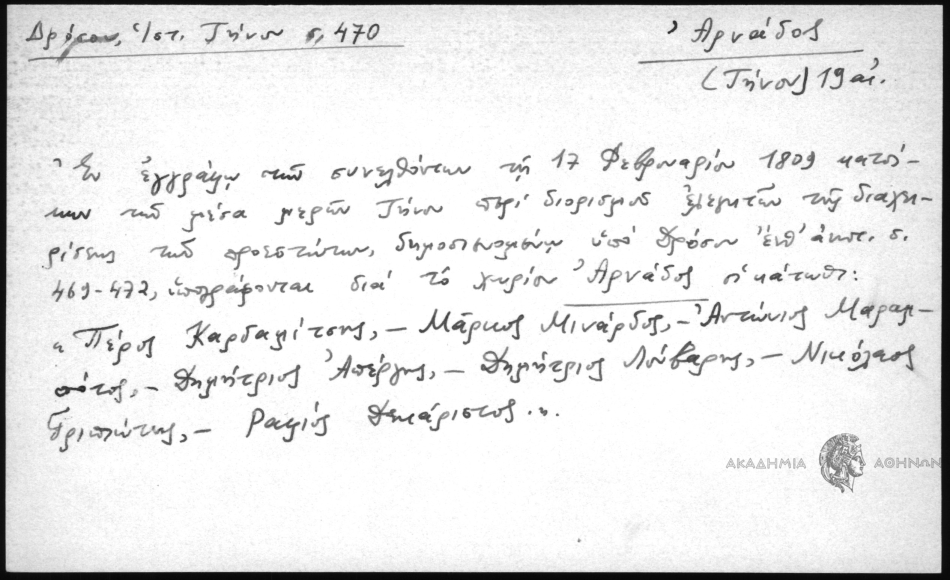 Δρόσου, Ἱστ. Τήνου σ. 470
Ἀρνάδος
(Τήνου) 19 αἰ.
Ἐν ἐγγράφῳ τῶν συνελθόντων τῇ 17 Φεβρουαρίου 1809 κατοί-
κων τῶν μέσα μερῶν Τήνου περὶ διορισμοῦ ἐλεγκτῶν τῆς διαχει-
ρίσεως τῶν προεστώτων, δημοσιευομένῳ ὑπὸ Δρόσου ἔνθ' ἀνωτ. σ.
469-472, ὑπογράφονται διὰ τὸ χωρίον Ἀρνάδος οἱ κάτωθι:
« Πέρος Καρδαμίτσης, – Μάρκος Μινάρδος, – Ἀντώνιος Μαραγ-
πότος, – Δημήτριος Ἀπέργης, – Δημήτριος Λούβαρης, – Νικόλαος
Πριπιώτης, – Ραφιός Δεκάριστος. ».
ΑΚΑΔΗΜΙΑ ΑΘΗΝΩΝ